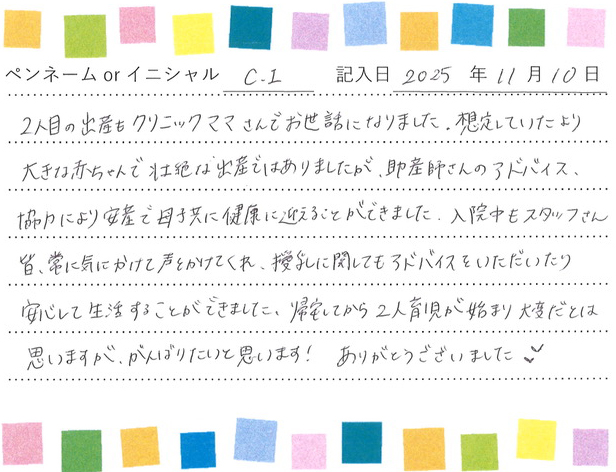 ペンネーム or イニシャル C.I 記入日 2025 年 11 月 10 日
2人目の出産もクリニックママさんでお世話になりました。想定していたより
大きな赤ちゃんで壮絶な出産ではありましたが、助産師さんのアドバイス、
協力により安産で母子共に健康に迎えることができました。入院中もスタッフさん
皆、常に気にかけて声をかけてくれ、授乳に関してもアドバイスをいただいたり
安心して生活することができました。帰宅してから2人育児が始まり大変だとは
思いますが、がんばりたいと思います! ありがとうございました